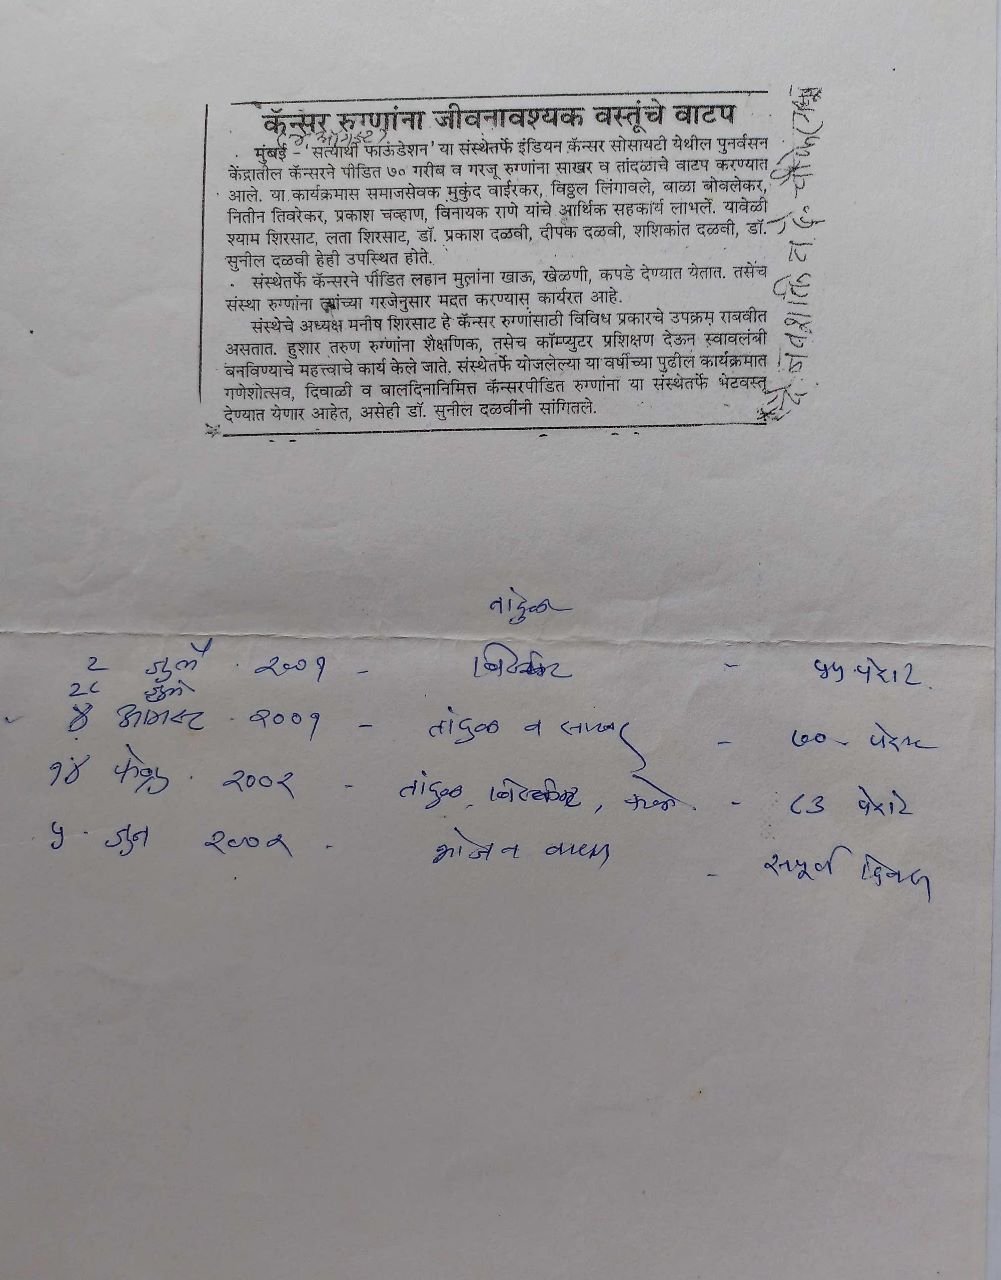 कॅन्सर रुग्णांना जीवनावश्यक वस्तूंचे वाटप
मुंबई - 'सत्यार्थी फाऊंडेशन' या संस्थेतर्फे इंडियन कॅन्सर सोसायटी येथील पुनर्वसन
केंद्रातील कॅन्सरने पीडित ७० गरीब व गरजू रुग्णांना साखर व तांदळाचे वाटप करण्यात
आले. या कार्यक्रमास समाजसेवक मुकुंद वाईरकर, विठ्ठल लिंगावले, बाळा बोवलेकर,
नितीन तिवरेकर, प्रकाश चव्हाण, विनायक राणे यांचे आर्थिक सहकार्य लाभले. यावेळी
श्याम शिरसाट, लता शिरसाट, डॉ. प्रकाश दळवी, दीपक दळवी, शशिकांत दळवी, डॉ.
सुनील दळवी हेही उपस्थित होते.
संस्थेतर्फे कॅन्सरने पीडित लहान मुलांना खाऊ, खेळणी, कपडे देण्यात येतात. तसेच
संस्था रुग्णांना त्यांच्या गरजेनुसार मदत करण्यास कार्यरत आहे.
संस्थेचे अध्यक्ष मनीष शिरसाट हे कॅन्सर रुग्णांसाठी विविध प्रकारचे उपक्रम राबवीत
असतात. हुशार तरुण रुग्णांना शैक्षणिक, तसेच कॉम्प्युटर प्रशिक्षण देऊन स्वावलंबी
बनविण्याचे महत्त्वाचे कार्य केले जाते. संस्थेतर्फे योजलेल्या या वर्षीच्या पुढील कार्यक्रमात
गणेशोत्सव, दिवाळी व बालदिनानिमित्त कॅन्सरपीडित रुग्णांना या संस्थेतर्फे भेटवस्तू
देण्यात येणार आहेत, असेही डॉ. सुनील दळवींनी सांगितले.
तांदुळ
२ जुलै २००१ - बिस्कीट - ५५ पेशंट
२८ जुलै
४ आगस्ट २००१ - तांदुळ व साखर - ७० पेशंट
१४ फेब्रु. २००२ - तांदुळ, बिस्कीट, फळे - ८३ पेशंट
५ जुन २००२ - भोजन वाटप - संपूर्ण दिवस